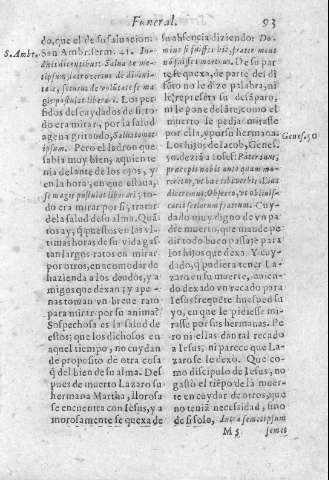 Funeral.
93
do, que el de su saluacion.
S. Ambr.
San Ambr. serm. 41.
magis postulat liberari. Los perfidos
era mirar, por la salud
agena gritando, Saluum
ipsum. Pero el ladron que
sabia muy bien, aquien tenia
delante de los ojos, y
en la hora, en que estaua,
se magis postulat liberari; todo
era mirar por si, tratar
de la salud de su alma. Quãtos
ay, q̃ puestos en las vltimas
horas de su vida gastan
largos ratos en mirar
por otros, en acomodar de
hazienda a los deudos, y amigos
que dexan; y apenas
toman vn breue rato
para mirar por su anima?
Sospechosa es la salud de
estos; que los dichosos en
aquel tiempo, no cuydan
de proposito de otra cosa
q̃ del bien de su alma. Despues
de muerto Lazaro su
hermana Martha, llorosa
se encuentra con Iesus, y amorosamente
se quexa de
su absencia diziendo: Domine
si fuisses hic, frater meus
non fuisset mortuus. De su parte
se quexa, de parte del difunto
no le dize palabra, ni
le representa su desãparo,
ni le pone delãte, como el
muerto le pedia mirasse
por ella, y por su hermana.
Genes. 50
Los hijos de Iacob, Genes.
50. dezian a Iosef: Pater tuus,
præcepit nobis antequam moreretur,
vt hæc tibi verbis illius
diceremus: Obsecro, vt obliuiscaris
sceleris fratrum. Cuydado
muy digno de vn padre
muerto, que mande pedir
todo buen passaje para
los hijos que dexa. Y cuydado,
q̃ pudiera tener Lazaro
en su muerte, auiendo
dexado vn recado para
Iesus frequẽte huesped suyo,
en que le pidiesse mirasse
por sus hermanas. Pero
ni ellas dan tal recado
a Iesus, ni parece que Lazaro
se le dexò. Que como
discipulo de Iesus, no
gastò el tiẽpo de la muerte
en cuydar de otros, que
no tenia necessidad, sino
de si solo, Intra semetipsum
M 5
semet